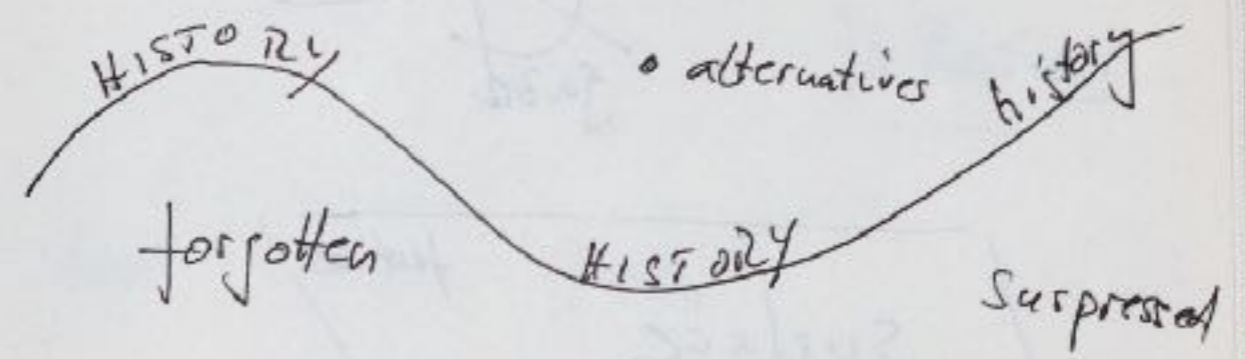 HISTORY
• alternatives
history
forgotten
HISTORY
Surpressed